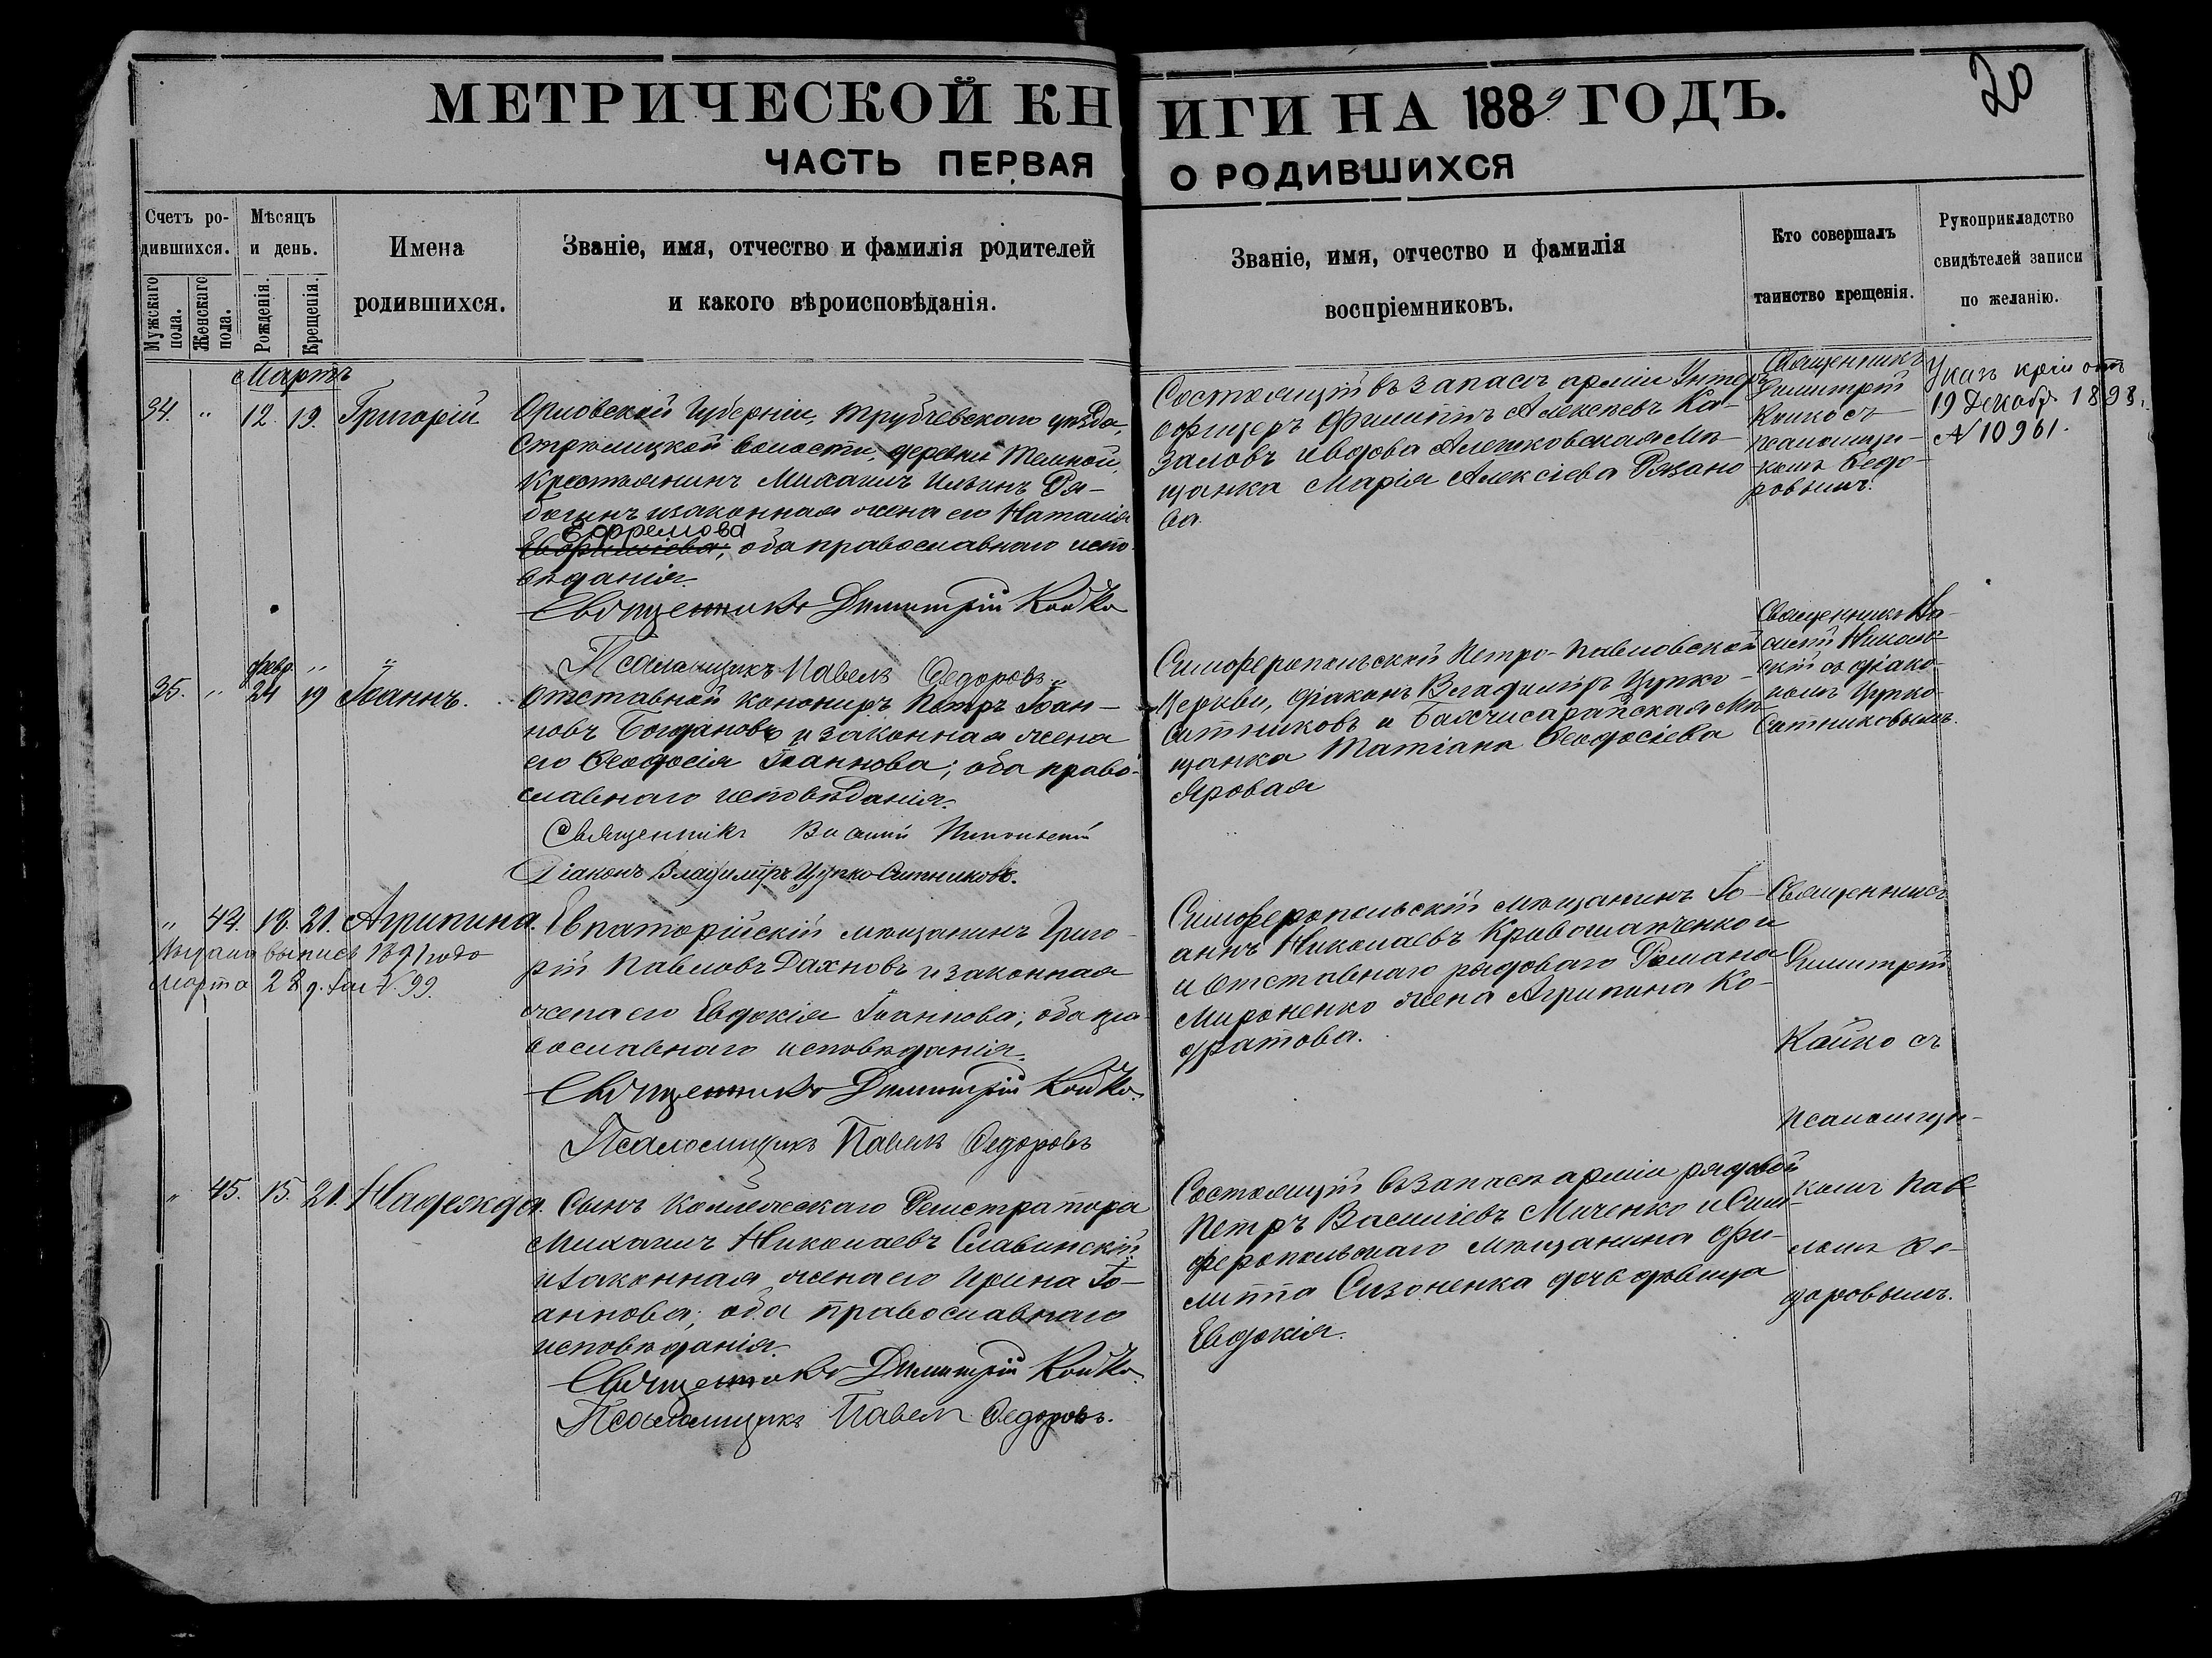 МЕТРИЧЕСКОЙ КНИГИ НА 1889 ГОДЪ.
20
ЧАСТЬ ПЕРВАЯ О РОДИВШИХСЯ
Счетъ ро-
дившихся.
Мужскаго пола.
Женскаго пола.
Мѣсяцъ
и день.
Рожденія.
Крещенія.
Имена
родившихся.
Званіе, имя, отчество и фамилія родителей
и какого вѣроисповѣданія.
Званіе, имя, отчество и фамилія
воспріемниковъ.
Кто совершалъ
таинство крещенія.
Рукоприкладство
свидѣтелей записи
по желанію.
Мартъ
34. " 12. 19. Григорій
Орловской Губерніи, Трубчевскаго уѣзда,
Стрѣлицкой волости, деревни Темной,
Крестьянинъ Михаилъ Ильинъ Ря-
и законная жена его Наталія
Ефремова
оба православнаго испо-
вѣданія.
Священникъ Димитрій Койко
Псаломщикъ Павелъ Ѳедоровъ
Состоящій въ запасѣ арміи Унтеръ
офицеръ Филиппъ Алексѣевъ Ка-
заловъ и вдова Алешковская Мѣ-
щанка Марія Алексіева Рязано
ва.
Священникъ
Димитрій
Койко съ
псаломщи-
комъ Ѳедо-
ровымъ.
Указъ отъ
19 Декабр. 1898 г.
№ 10961.
февр. " "
35. " 24 19 Іоаннъ.
Отставной канониръ Петръ Іоан-
новъ Богдановъ и законная жена
его Ѳеодосія Іоаннова; оба право-
славнаго исповѣданія.
Священникъ Василій Никольскій
Діаконъ Владиміръ Цупко-Ситниковъ.
Симферопольской Петро-Павловской
Церкви, діаконъ Владиміръ Цупко-
Ситниковъ и Бахчисарайская Мѣ-
щанка Татіана Ѳеодосіева
Яровая
Священникъ Ва-
силій Николь-
скій съ діако-
номъ Цупко-
Ситниковымъ.
" 44. 13. 21. Агрипина.
Выдана выпись 1891 года
Марта 28 д. за № 99.
Евпаторійскій мѣщанинъ Григо-
рій Павловъ Дахновъ и законная
жена его Евдокія Іоаннова; оба пра-
вославнаго исповѣданія.
Священникъ Димитрій Койко.
Псаломщикъ Павелъ Ѳедоровъ
Симферопольскій мѣщанинъ Іо-
аннъ Николаевъ Кривошапченко и
и отставнаго рядоваго Романа
Мироненко жена Агрипина Ко-
дратова.
Священникъ
Димитрій
Койко съ
псаломщи-
комъ Пав-
ломъ Ѳе-
доровымъ.
" 45. 15. 21. Надежда.
Сынъ Коллежскаго Регистратора
Михаилъ Николаевъ Славинскій
и законная жена его Ирина Іо-
аннова; оба православнаго
исповѣданія.
Священникъ Димитрій Койко.
Псаломщикъ Павелъ Ѳедоровъ.
Состоящій въ запасѣ арміи рядовой
Петръ Василіевъ Миченко и Сим-
феропольскаго мѣщанина Фи-
липпа Сизоненка дочь дѣвица
Евдокія.